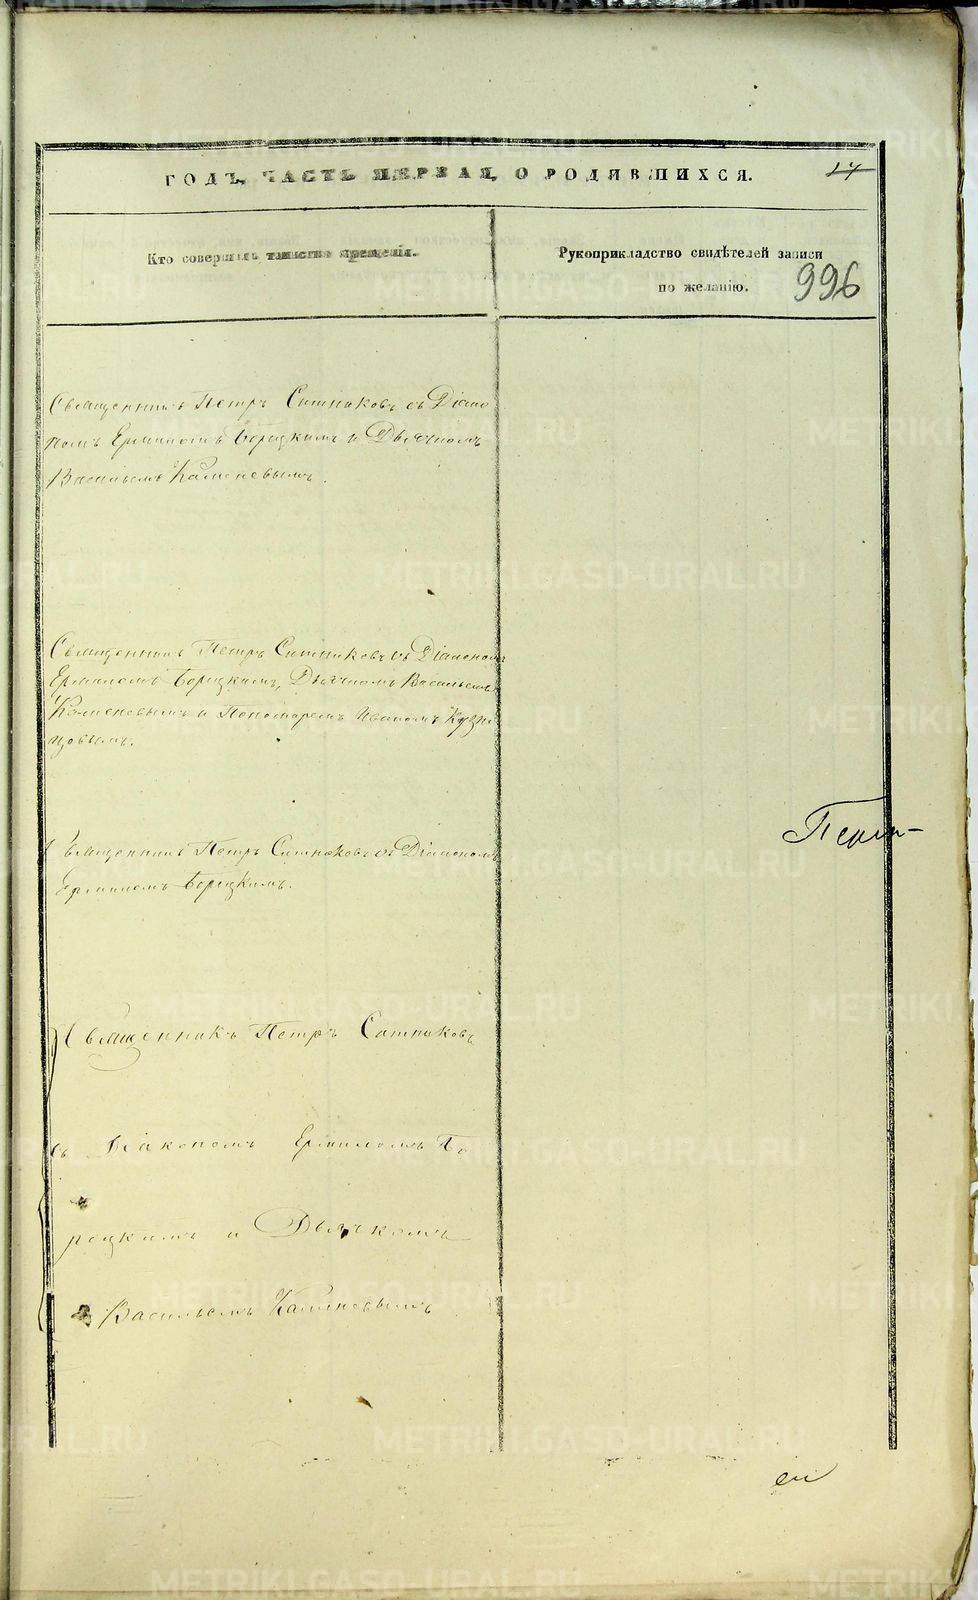 ГОДЪ, ЧАСТЬ ПЕРВАЯ, О РОДИВШИХСЯ.
14
Кто совершалъ таинство крещенія.
Рукоприкладство свидѣтелей записи
по желанію.
996
Священникъ Петръ Ситниковъ съ Діако
номъ Ермиломъ Борецкимъ и Дьячкомъ
Васильемъ Каменевымъ.
Священникъ Петръ Ситниковъ съ Діакономъ
Ермиломъ Борецкимъ, Дьячкомъ Васильемъ
Каменевымъ и Пономаремъ Иваномъ Кузне
цовымъ.
Священникъ Петръ Ситниковъ съ Діакономъ
Ермиломъ Борецкимъ.
Священникъ Петръ Ситниковъ
съ Діакономъ Ермиломъ Бо
рецкимъ и Дьячкомъ
Васильемъ Каменевымъ
METRIKI.GASO-URAL.RU